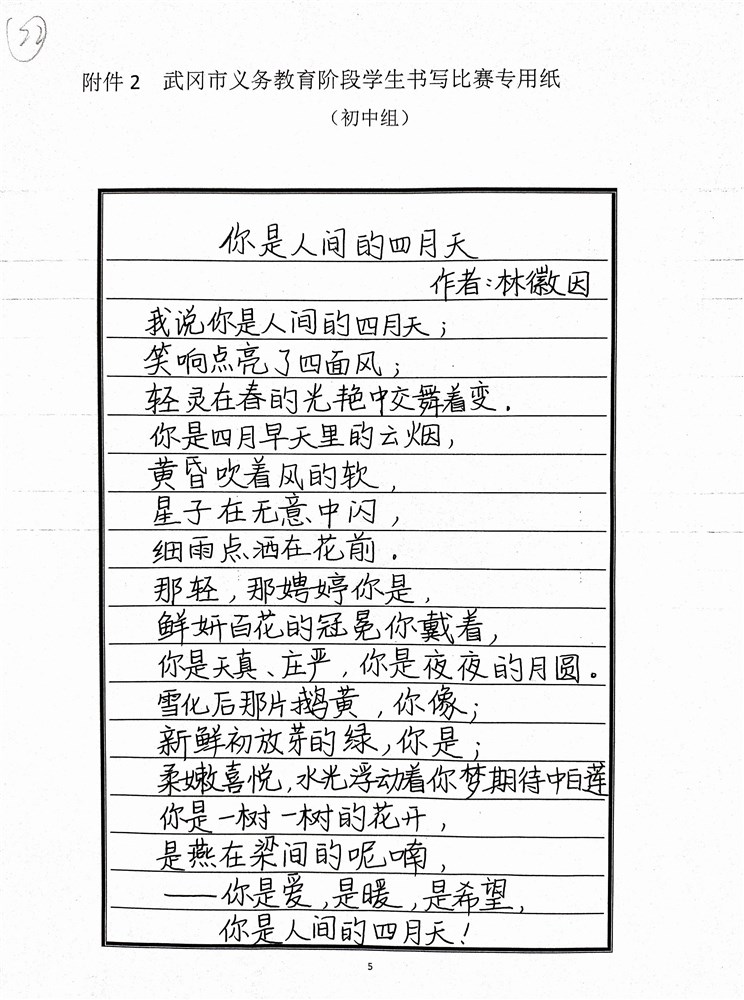 52
附件2 武冈市义务教育阶段学生书写比赛专用纸
（初中组）
你是人间的四月天
作者:林徽因
我说你是人间的四月天；
笑响点亮了四面风；
轻灵在春的光艳中交舞着变.
你是四月早天里的云烟,
黄昏吹着风的软,
星子在无意中闪,
细雨点洒在花前.
那轻,那娉婷你是,
鲜妍百花的冠冕你戴着,
你是天真、庄严,你是夜夜的月圆。
雪化后那片鹅黄,你像;
新鲜初放芽的绿,你是;
柔嫩喜悦,水光浮动着你梦期待中白莲
你是一树一树的花开,
是燕在梁间的呢喃,
——你是爱,是暖,是希望,
你是人间的四月天!
5